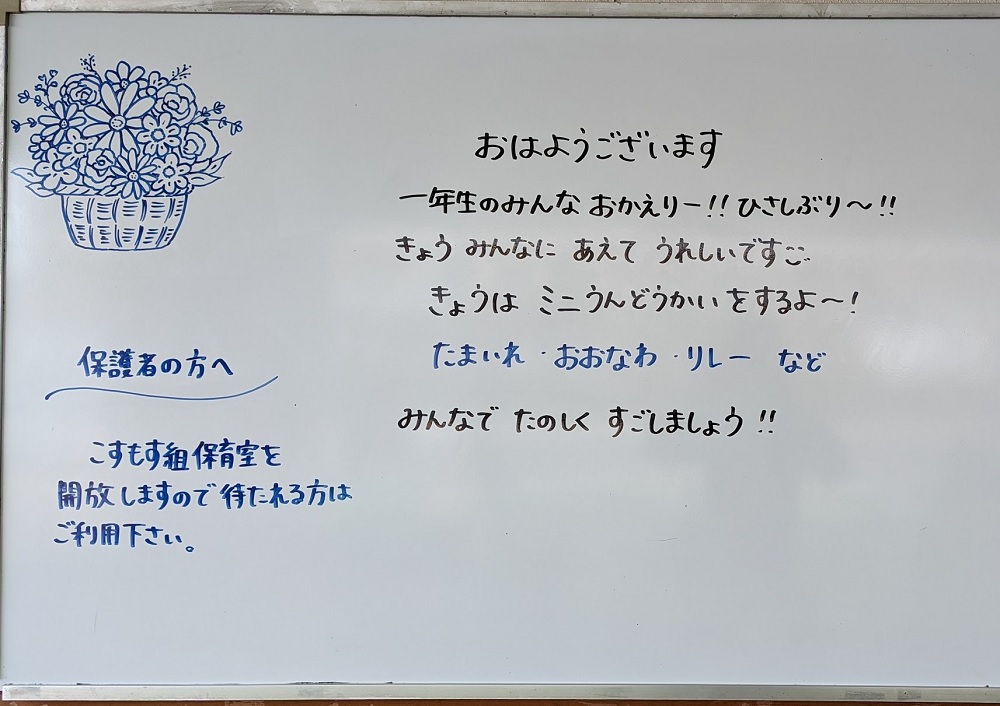 おはようございます
一年生のみんな おかえりー!! ひさしぶり〜!!
きょう みんなに あえて うれしいです
きょうは ミニうんどうかい をするよ〜!
たまいれ・おおなわ・リレー など
みんなで たのしく すごしましょう!!
保護者の方へ
こすもす組保育室を
開放しますので待たれる方は
ご利用下さい。